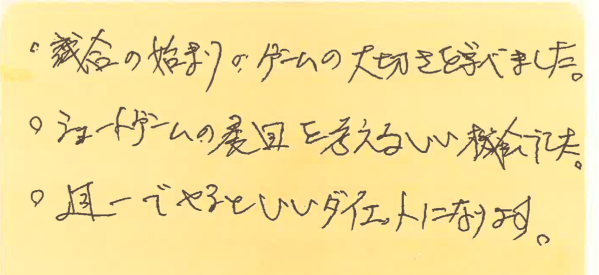 ○ 試合の始まりのゲームの大切さを学べました。
○ ショートゲームの展回を考えるいい機会でした。
○ 週一でやるといいダイエットになります。